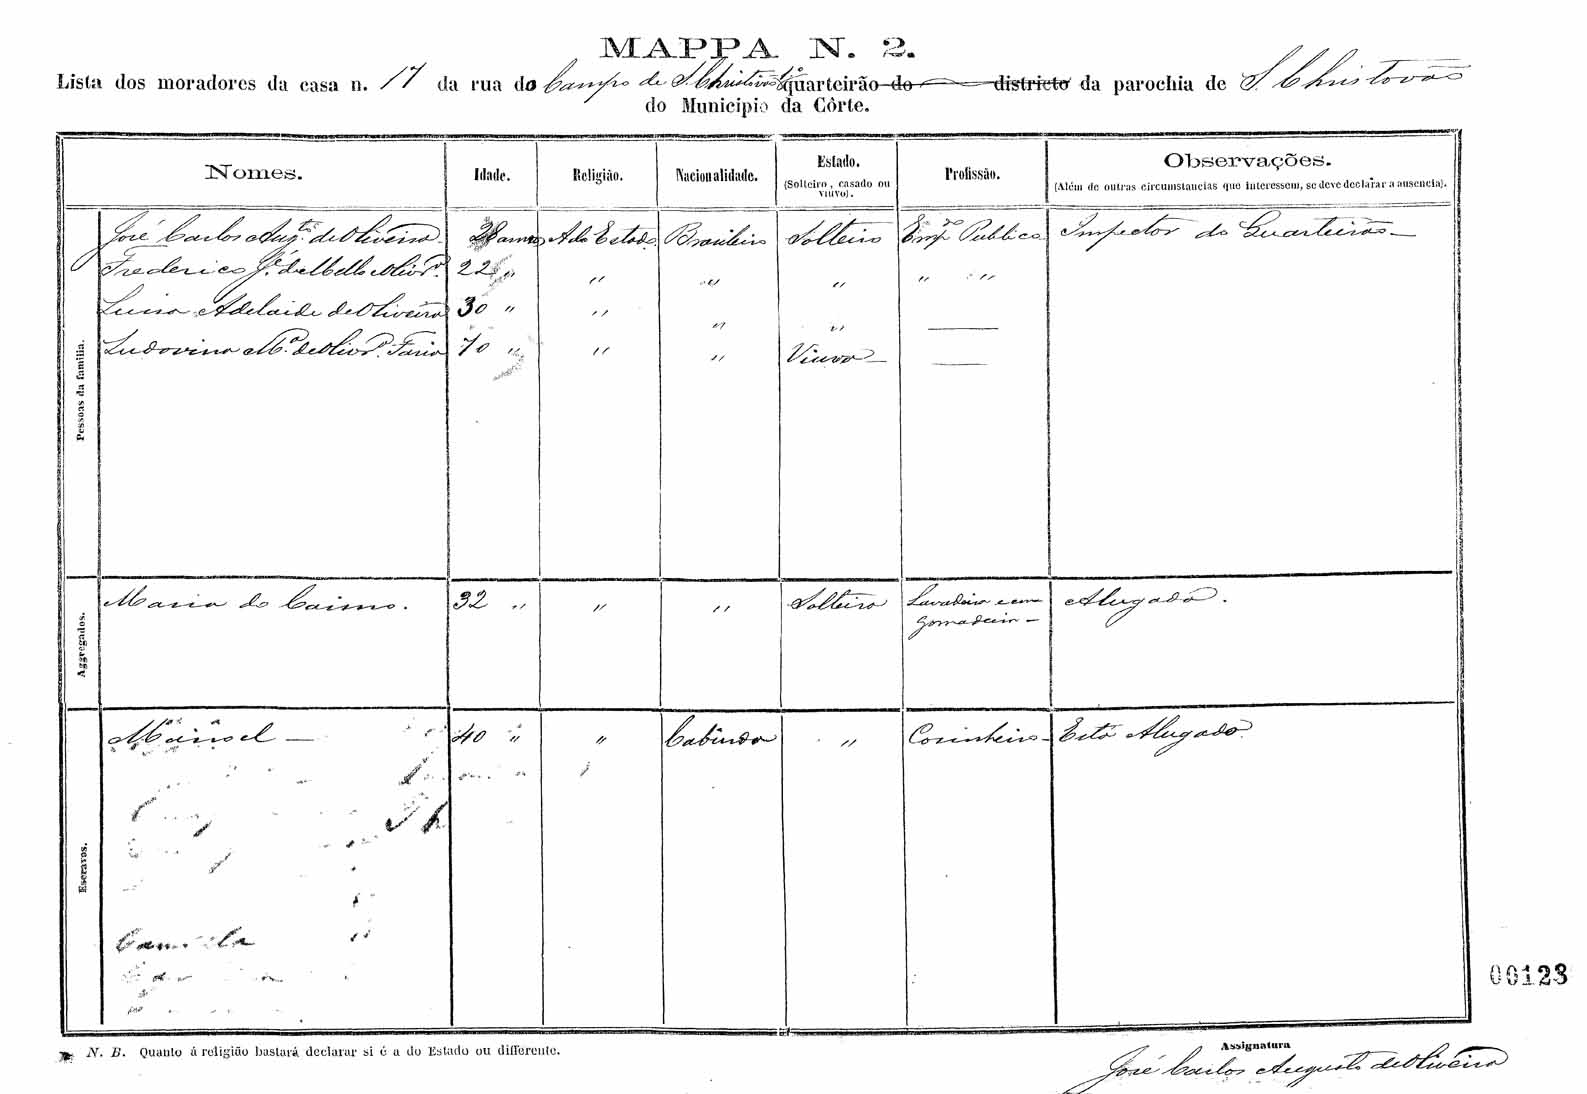 MAPPA N. 2.
Lista dos moradores da casa n. 17 da rua do Campo de S. Christovão 1º quarteirão do districto da parochia de S. Christovão
do Municipio da Côrte.
Nomes. Idade. Religião. Nacionalidade. Estado. (Solteiro, casado ou viuvo). Profissão. Observações. (Além de outras circumstancias que interessem, se deve declarar a ausencia).
Pessoas da familia.
José Carlos Aug.to de Oliveira 28 annos A do Estado Brasileiro Solteiro Emp.do Publico Inspector do Quarteirão
Frederico J.e de Mello Oliv.ra 22 " " " " " "
Luisa Adelaide de Oliveira 30 " " " "
Ludovina M.a de Oliv.ra Faria 70 " " " Viuva
Aggregados.
Maria do Carmo. 32 " " " Solteira Lavadeira e en
gomadeira Alugada.
Escravos.
Manoel 40 " " Cabinda " Cosinheiro Está Alugado
N. B. Quanto á religião bastará declarar si é a do Estado ou differente.
00123
Assignatura
José Carlos Augusto de Oliveira